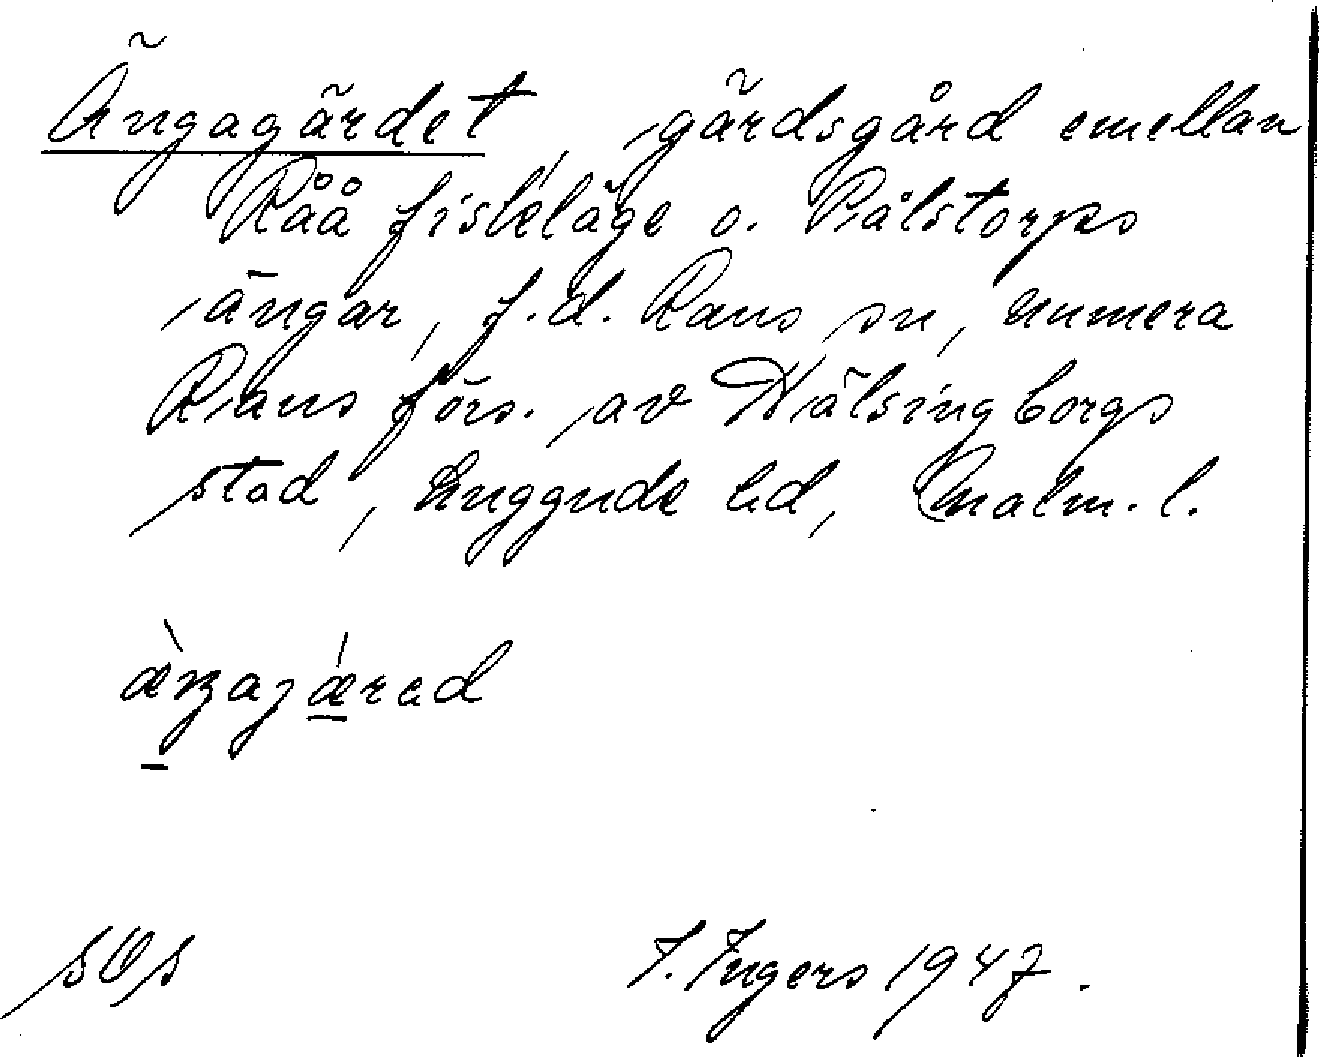 Ängagärdet, gärdsgård emellan
Råå fiskeläge o. Pålstorps
ängar, f.d. Raus sn, numera
Raus förs. av Hälsingborgs
stad, Luggude hd, Malm. l.
æ̀ŋajǽrəd
I. Ingers 1947.